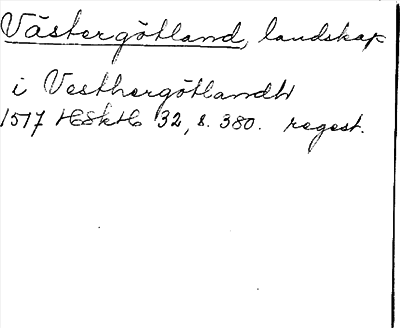 Västergötland, landskap
i Vesthergötlandh
1517 HSkH 32, s. 380. regest.